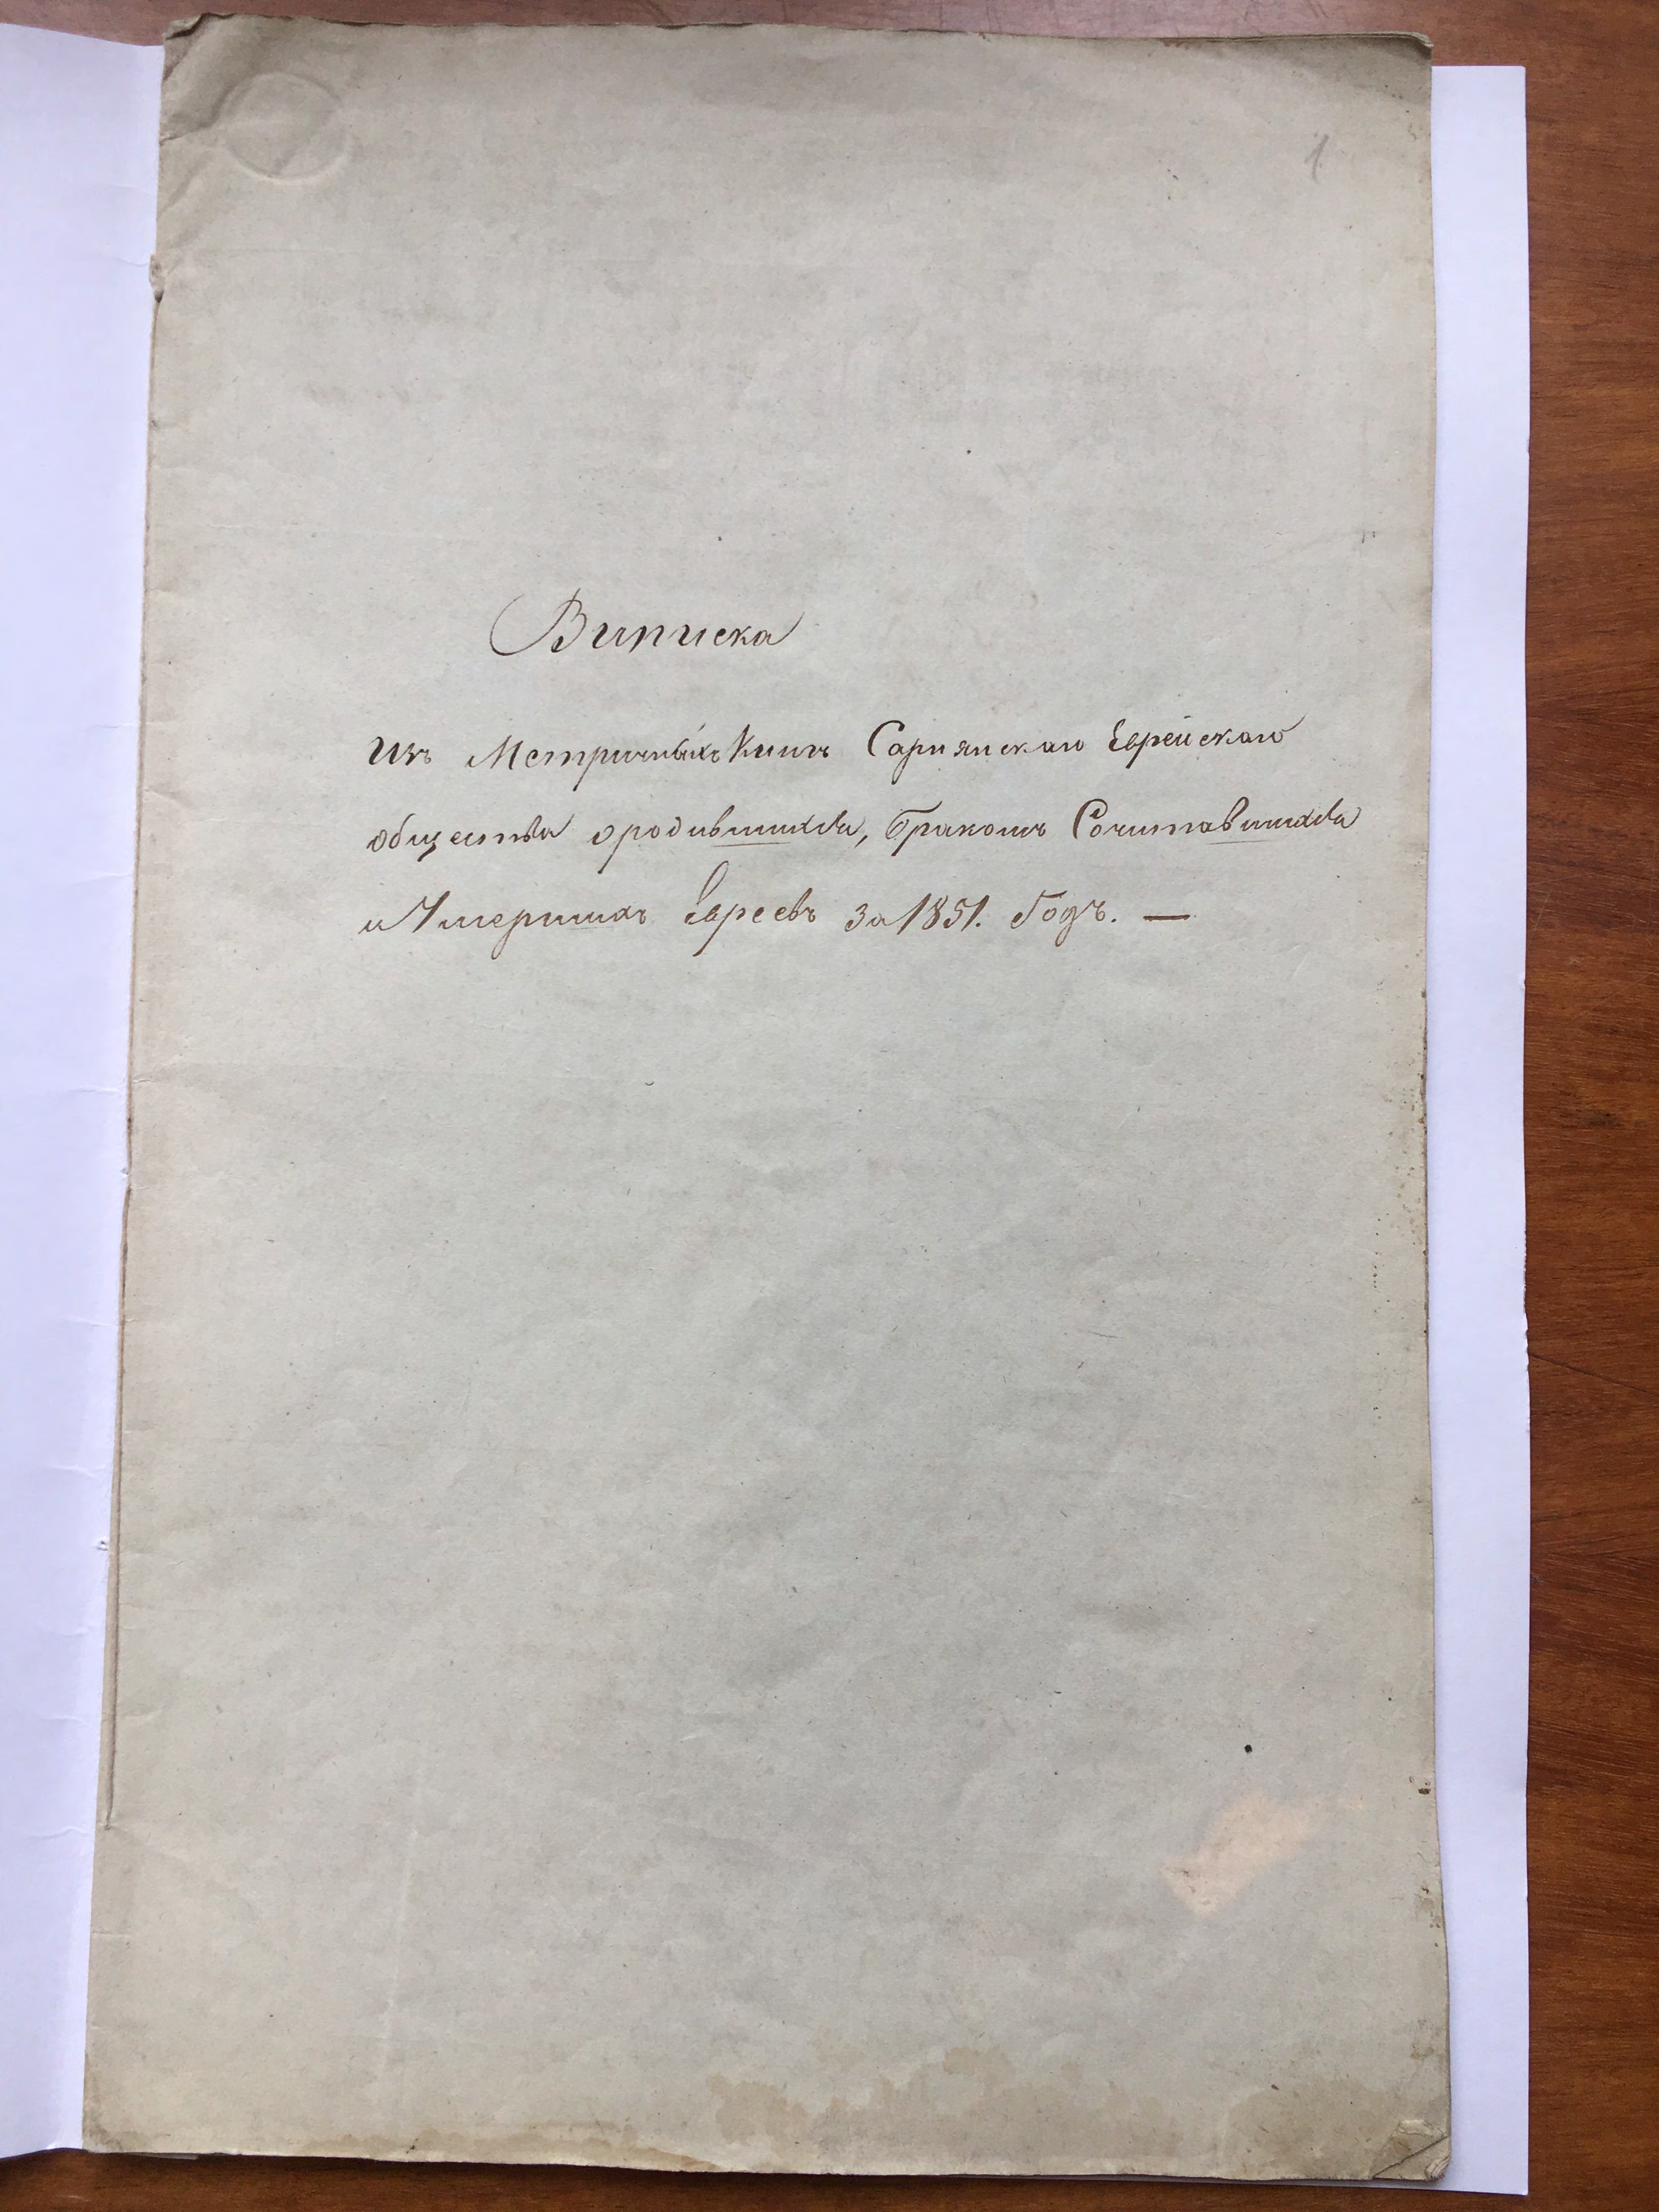 1
Выписка
Изъ Метричныхъ Книгъ Сарнянскаго Еврейскаго
общества ородившихся, бракомъ Сочитавшихся
и Умершихъ Евреевъ за 1851. Годъ. —